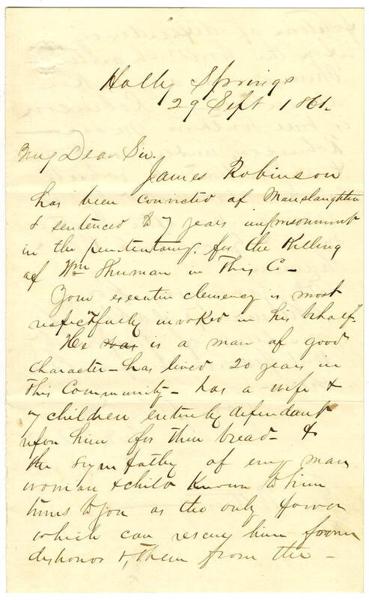 Holly Springs
29 Sept 1861.
My Dear Sir.
James Robinson
has been convicted of Manslaughter
& sentenced to 7 years imprisonment
in the penitentiary for the Killing
of Wm Thurman in This Co-
Your executive clemency is most
respectfully invoked in his behalf.
He was is a man of good
Character - has lived 20 years in
This Community - has a wife &
7 children entirely dependant
upon him for their bread - &
the sympathy of every man
woman & child Known to him
turns to you as the only power
which can rescue him from
dishonor &, them from the -